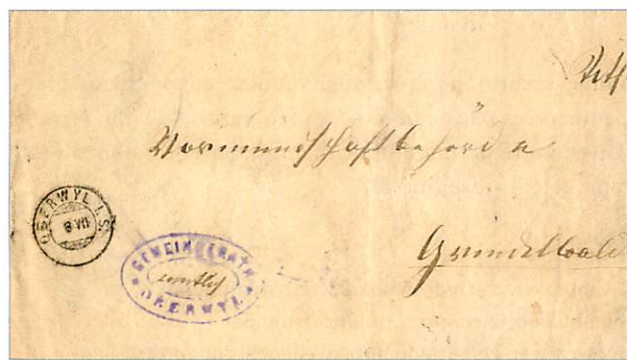 Vormundschaftbehörde
Grindelwald
OBERWYL I. S.
8 VII
GEMEINDERATH
amtlich
OBERWYL